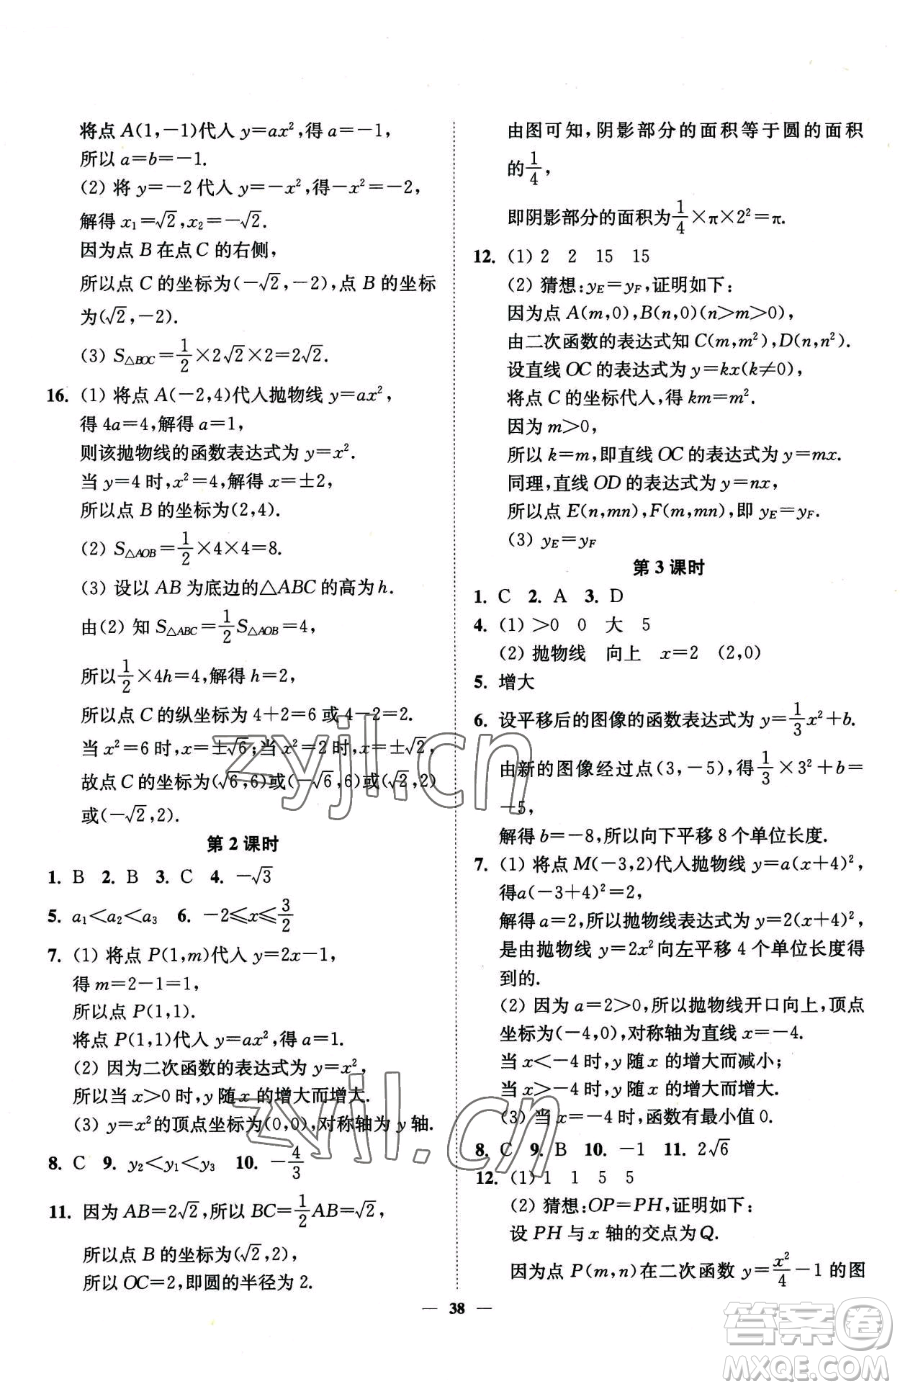 将点 A(1,-1)代人 y=ax²,得 a=-1,
所以 a=b=-1.
(2) 将 y=-2 代人 y=-x²,得-x²=-2,
解得 x₁=√2,x₂=-√2.
因为点 B 在点 C 的右侧,
所以点 C 的坐标为(-√2,-2),点 B 的坐标
为(√2,-2).
(3) S△BOC=1/2×2√2×2=2√2.
16. (1) 将点 A(-2,4)代人抛物线 y=ax²,
得 4a=4,解得 a=1,
则该抛物线的函数表达式为 y=x².
当 y=4 时,x²=4,解得 x=±2,
所以点 B 的坐标为(2,4).
(2) S△AOB=1/2×4×4=8.
(3) 设以 AB 为底边的△ABC 的高为 h.
由(2) 知 S△ABC=1/2S△AOB=4,
所以1/2×4h=4,解得 h=2,
所以点 C 的纵坐标为 4+2=6 或 4-2=2.
当 x²=6 时,x=±√6;当 x²=2 时,x=±√2,
故点 C 的坐标为(√6,6)或(-√6,6)或(√2,2)
或(-√2,2).
第 2 课时
1. B 2. B 3. C 4. -√3
5. a₁<a₂<a₃ 6. -2≤x≤3/2
7. (1) 将点 P(1,m)代人 y=2x-1,
得 m=2-1=1,
所以点 P(1,1).
将点 P(1,1)代人 y=ax²,得 a=1.
(2) 因为二次函数的表达式为 y=x²,
所以当 x>0 时,y 随 x 的增大而增大.
(3) y=x²的顶点坐标为(0,0),对称轴为 y 轴.
8. C 9. y₂<y₁<y₃ 10. -4/3
11. 因为 AB=2√2,所以 BC=1/2AB=√2,
所以点 B 的坐标为(√2,2),
所以 OC=2,即圆的半径为 2.
由图可知,阴影部分的面积等于圆的面积
的1/4,
即阴影部分的面积为1/4×π×2²=π.
12. (1) 2 2 15 15
(2) 猜想:yE=yF,证明如下:
因为点 A(m,0),B(n,0)(n>m>0),
由二次函数的表达式知 C(m,m²),D(n,n²).
设直线 OC 的表达式为 y=kx(k≠0),
将点 C 的坐标代人,得 km=m².
因为 m>0,
所以 k=m,即直线 OC 的表达式为 y=mx.
同理,直线 OD 的表达式为 y=nx,
所以点 E(n,mn),F(m,mn),即 yE=yF.
(3) yE=yF
第 3 课时
1. C 2. A 3. D
4. (1) >0 0 大 5
(2) 抛物线 向上 x=2 (2,0)
5. 增大
6. 设平移后的图像的函数表达式为 y=1/3x²+b.
由新的图像经过点(3,-5),得1/3×3²+b=
-5,
解得 b=-8,所以向下平移 8 个单位长度.
7. (1) 将点 M(-3,2)代人抛物线 y=a(x+4)²,
得a(-3+4)²=2,
解得 a=2,所以抛物线表达式为 y=2(x+4)²,
是由抛物线 y=2x² 向左平移 4 个单位长度得
到的.
(2) 因为 a=2>0,所以抛物线开口向上,顶点
坐标为(-4,0),对称轴为直线 x=-4.
当 x<-4 时,y 随 x 的增大而减小;
当 x>-4 时,y 随 x 的增大而增大.
(3) 当 x=-4 时,函数有最小值 0.
8. C 9. B 10. -1 11. 2√6
12. (1) 1 1 5 5
(2) 猜想:OP=PH,证明如下:
设 PH 与 x 轴的交点为 Q.
因为点 P(m,n)在二次函数 y=x²/4-1 的图
— 38 —
zyjl.cn
zyjl.cn
答案卷
MXQE.COM